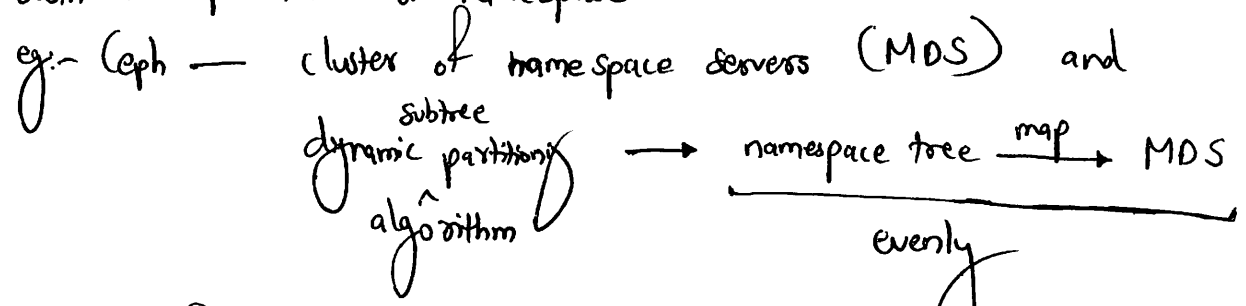 eg:- Ceph — cluster of namespace servers (MDS) and
subtree
dynamic partitioning → namespace tree map→ MDS
^
algorithm
evenly